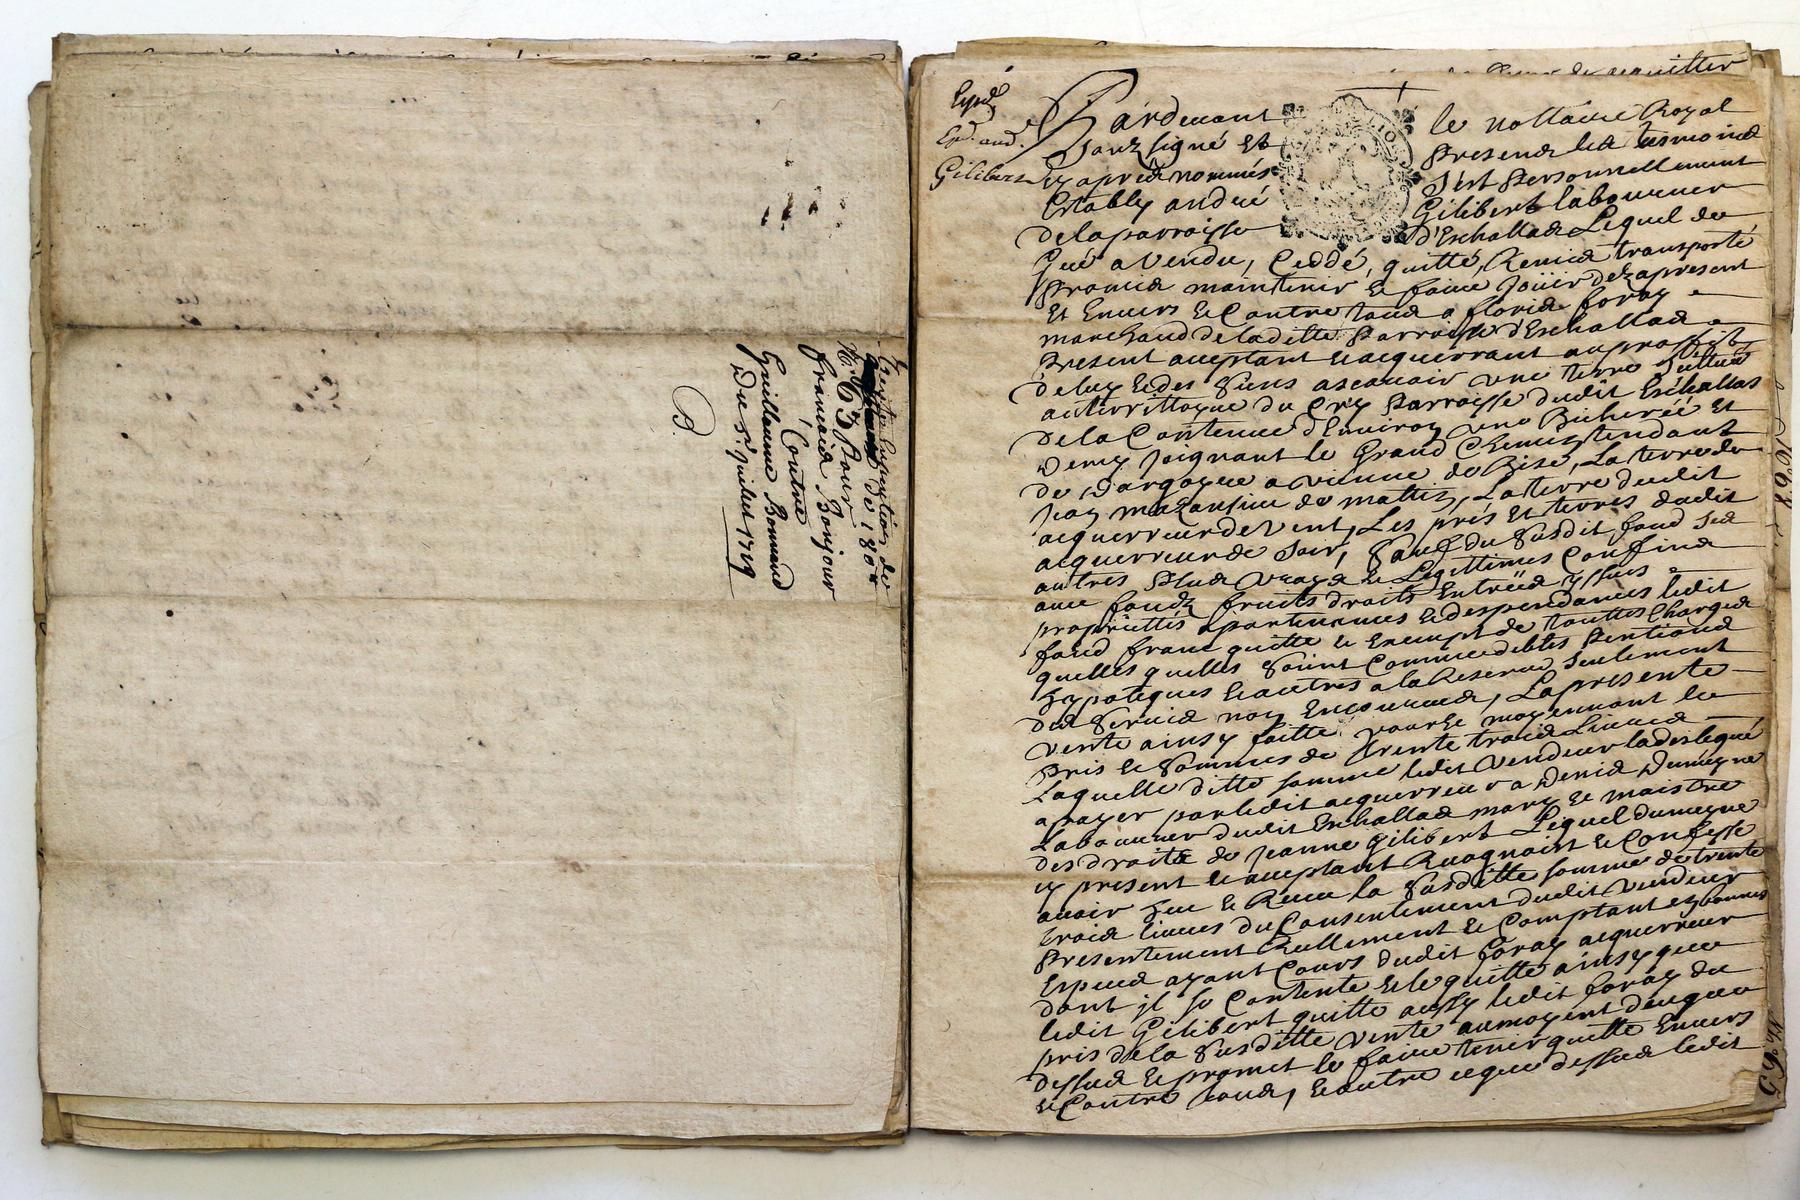 de 1808
N.º 63 Pour
francois Bonjour
Contre
Guillaume Bonnand
Du 5.e juillet 1729
B.
Expd.
Gilibert
Pardevant le nottaire Royal
Souzsigné Et presens les tesmoins
cy apres nommés S'est Personnellement
Estably andré Gilibert laboureur
de la parroisse d'Eschallas Lequel de
Gré a vendu, Ceddé, quitté, Remis transporté
promis maintenir & faire joüir dez apresent
Et Envers & Contre tous a floris foray
marchand de laditte Parroisse d'Eschallas
Present aceptant & acquerrant au proffit
de luy & des siens ascavoir une terre Scittuée
au territtoyre du Cry Parroisse dudit Eschallas
de la Contenue d'Environ une Bicherée Et
Demy joignant le Grand Chemin tendant
de Dargoyre a vienne de Bise, La terre de
jean de mattin, La terre dudit
acquerreur de vent, Les prés Et terres dudit
acquerreur de Soir, Sauf du Susdit fond Ses
autres Plus vrays & Legittimes Confins
avec fondz fruits droits Entrées yssues
propriettés apartenances & despendances ledit
fond franc quitte & Exempt de touttes Charges
quelles quelles Soint Commedebtes Pentions
hypoteques & autres a la Reserve Seulement
des Servis non Encourus, La presente
vente ainsy faitte pour & moyennant le
Pris & Somme de trente trois Livres
Laquelle ditte somme ledit vendeur
a payer par ledit acquerreur a Denis Dumeyne
Laboureur dudit Eschallas mary & maistre
des droits de jeanne Gilibert Lequel dumeyne
cy present & aceptant Recognoist & Confesse
avoir heu & Receu la Susditte somme de trente
trois livres du Consentement dudit vendeur
Presentement Reellement & Comptant en bonnes
Especes ayant Cours dudit foray acquerreur
dont il se Contente & le quitte ainsy que
ledit Gilibert quitte aussy ledit foray du
pris de la Susditte vente au moyent de ce que
dessus & promet le faire tenir quitte Envers
& Contre tous, & outre ce que dessus ledit